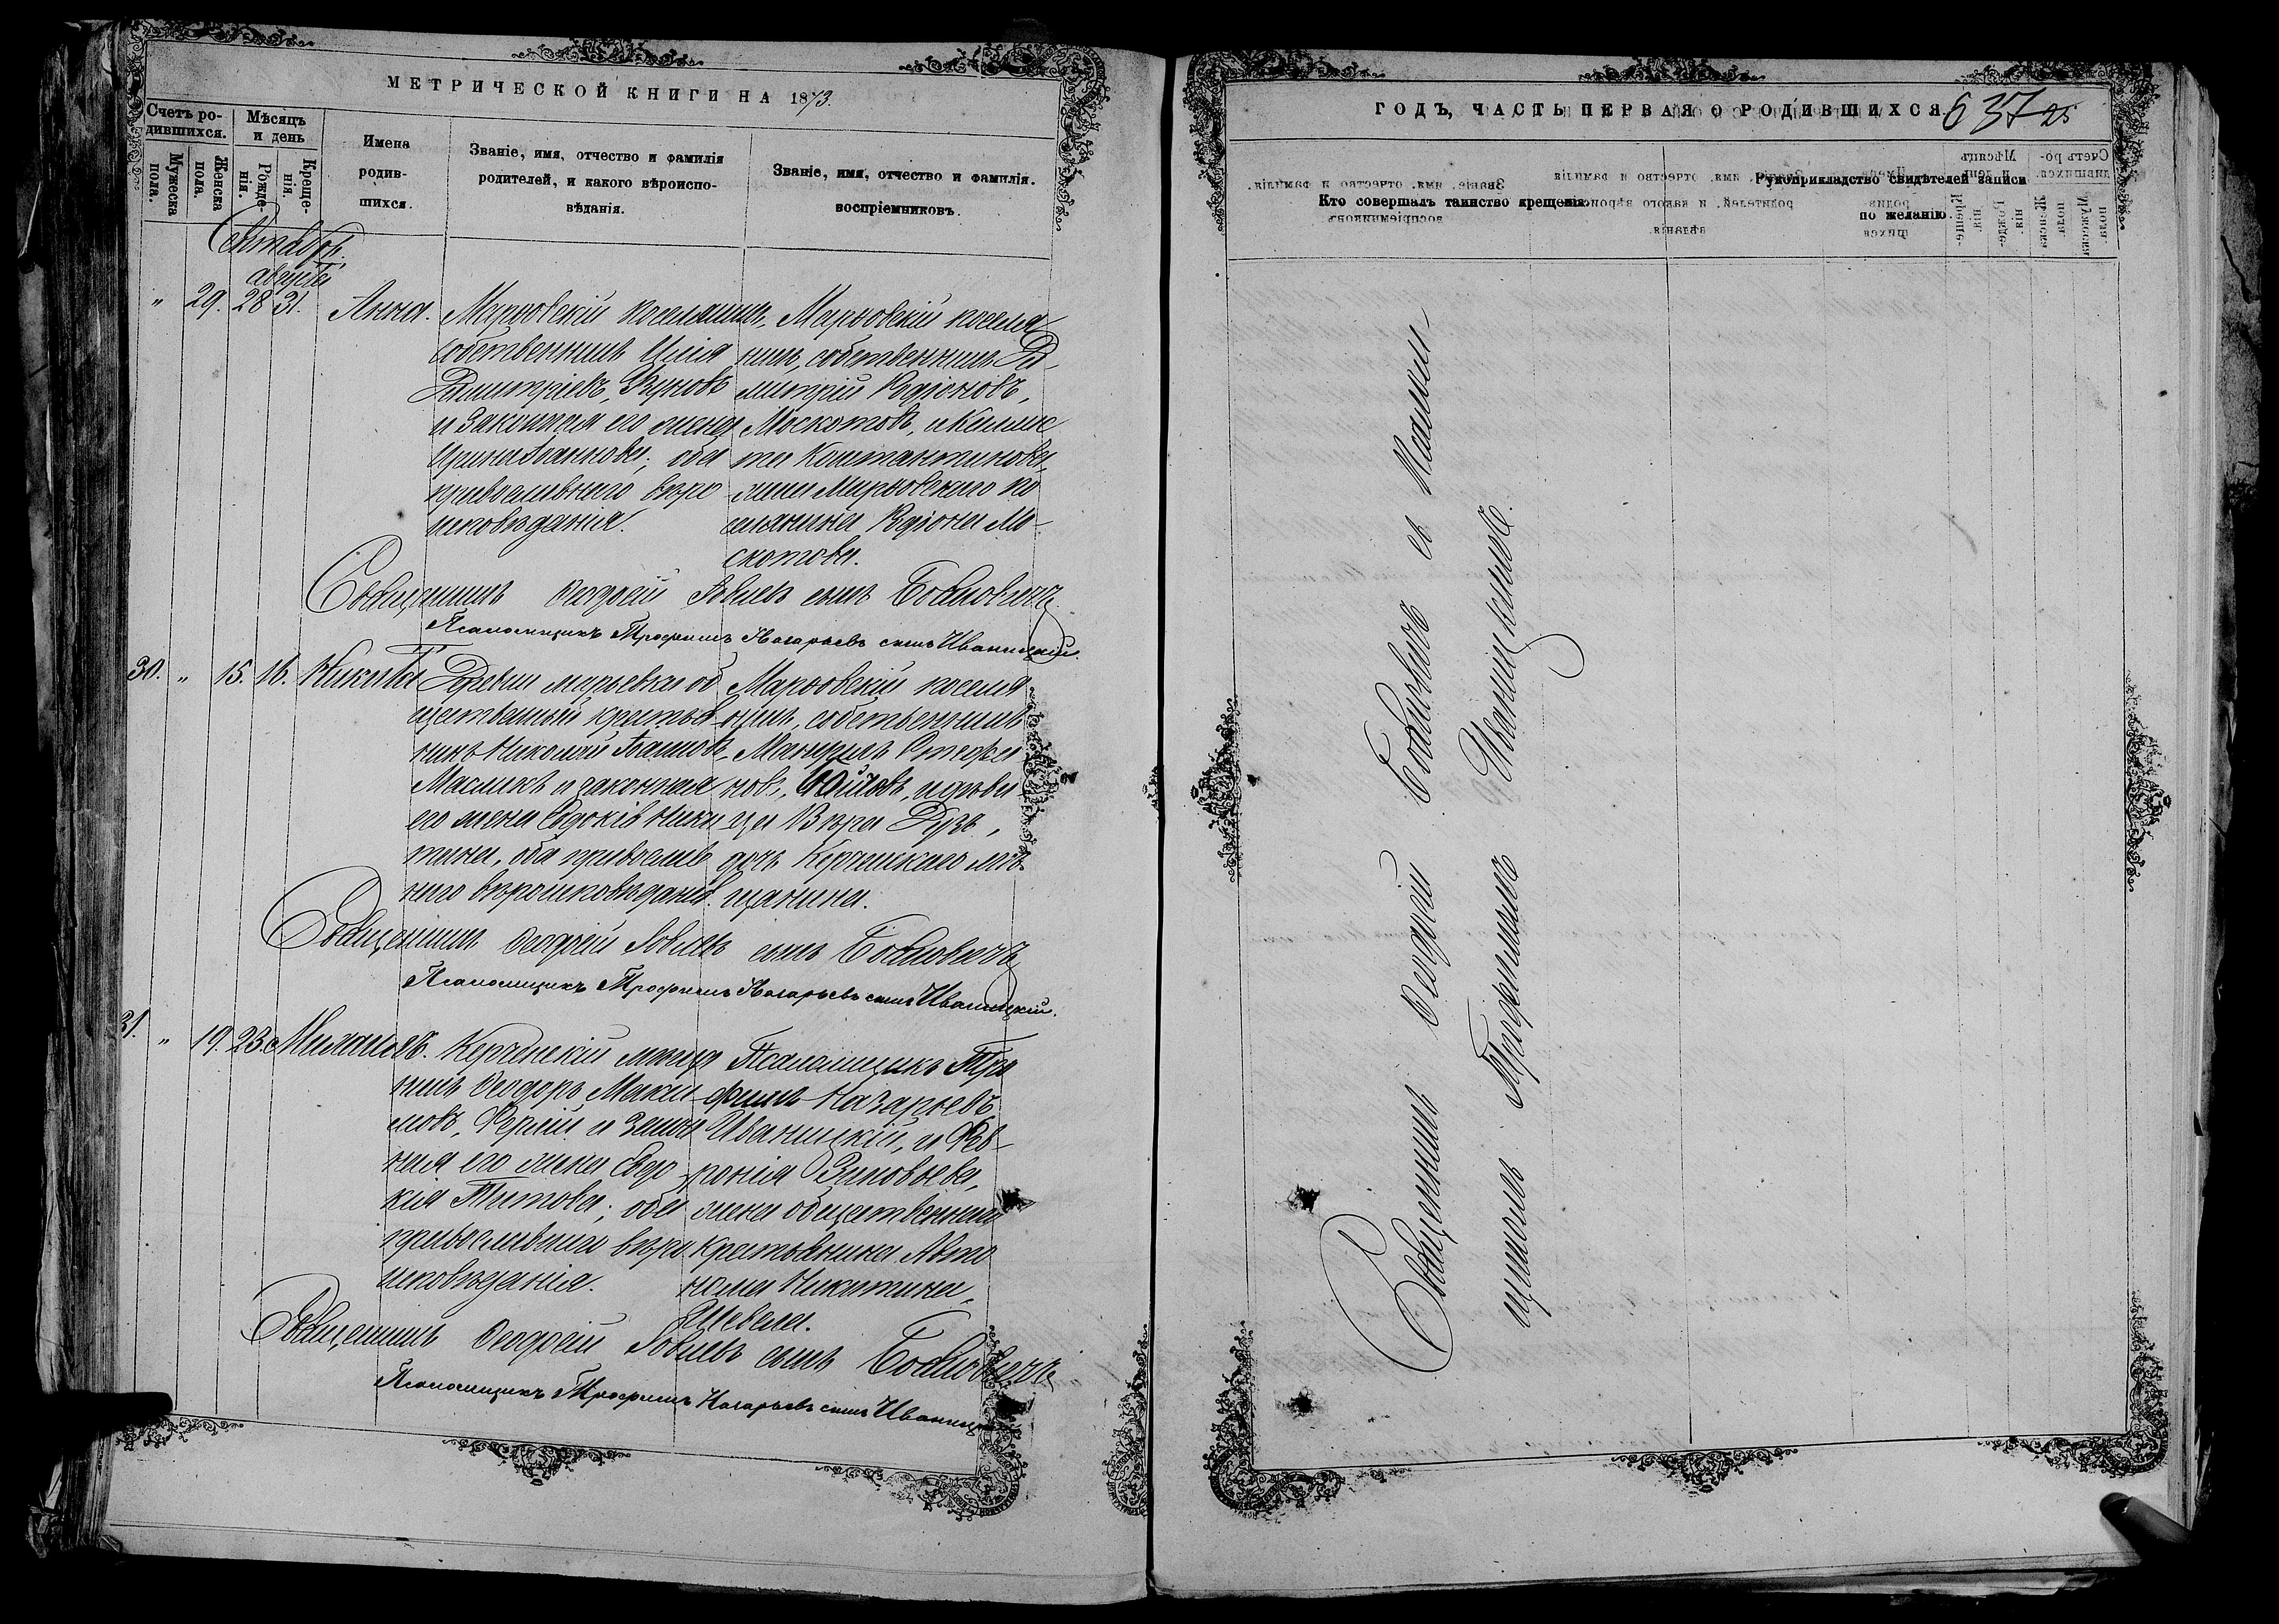 МЕТРИЧЕСКОЙ КНИГИ НА 1873.
Счетъ ро-
дившихся.
Мѣсяцъ
и день
Мужеска
пола.
Женска
пола.
Рожде-
нія.
Креще-
нія.
Имена
родив-
шихся.
Званіе, имя, отчество и фамилія
родителей, и какого вѣроиспо-
вѣданія.
Званіе, имя, отчество и фамилія.
воспріемниковъ.
Сентябрь.
августа
" 29. 28 31. Анна.
Марѳовскій поселянинъ,
собственникъ Илія
Димитріевъ, Зуновъ
и законная его жена
Ирина Иванова; оба
православнаго вѣро
исповѣданія.
Марѳовскій поселя
нинъ, собственникъ Ди-
митрій Родіоновъ,
Москотовъ, и Калис
та Константинова,
жена Марѳовскаго по
селянина Родіона Мо-
скотова.
Священникъ Ѳеодосій Іовлевъ сынъ Бояновичъ
Псаломщикъ Трофимъ Назарьевъ сынъ Иваницкій.
30. " 15. 16. Никита
Деревни Марьевки об
щественный крестья
нинъ Николай Ивановъ,
Масликъ и законная
его жена Евдокія Ники
тина, оба православ
наго вѣроисповѣданія.
Марѳовскій поселя
нинъ, собственникъ
Стефа
новъ, и дѣви
ца Вѣра
дочь Керченскаго мѣ-
щанина.
Священникъ Ѳеодосій Іовлевъ сынъ Бояновичъ
Псаломщикъ Трофимъ Назарьевъ сынъ Иваницкій.
31. " 19. 23.
Керченскій мѣща
нинъ Ѳеодоръ Макси
мовъ, и закон
ная его жена Евдо
кія Титова; оба
православнаго вѣро
исповѣданія.
Псаломщикъ Тро
фимъ Назарьевъ
Иваницкій, и Фев-
ронія Зиновьева,
жена общественнаго
крестьянина Авто
нома Никитина,
Шевела.
Священникъ Ѳеодосій Іовлевъ сынъ Бояновичъ
Псаломщикъ Трофимъ Назарьевъ сынъ Иваницкій
ГОДЪ, ЧАСТЬ ПЕРВАЯ О РОДИВШИХСЯ.
637 25
Кто совершалъ таинство крещенія.
Рукоприкладство свидѣтелей записи
по желанію.
Священникъ Ѳеодосій Бояновичъ съ Псалом-
щикомъ Трофимомъ Иваницкимъ.